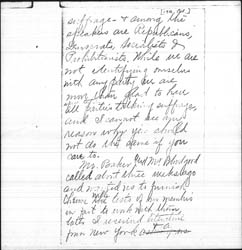 suffrage & among the
speakers are Republicans,
Democrats, Socialists &
Prohibitionists. While we are
not identifying ourselves
with any party we are
more than glad to have
all parties talking suffrage
and I cannot see any
reason why you should
not do the same if you
care to.
Mrs. Baker and Mrs. Blodgood
called about three weeks ago
and me to furnish
them the lists of our members
in part to work with them
both. I received
from New York